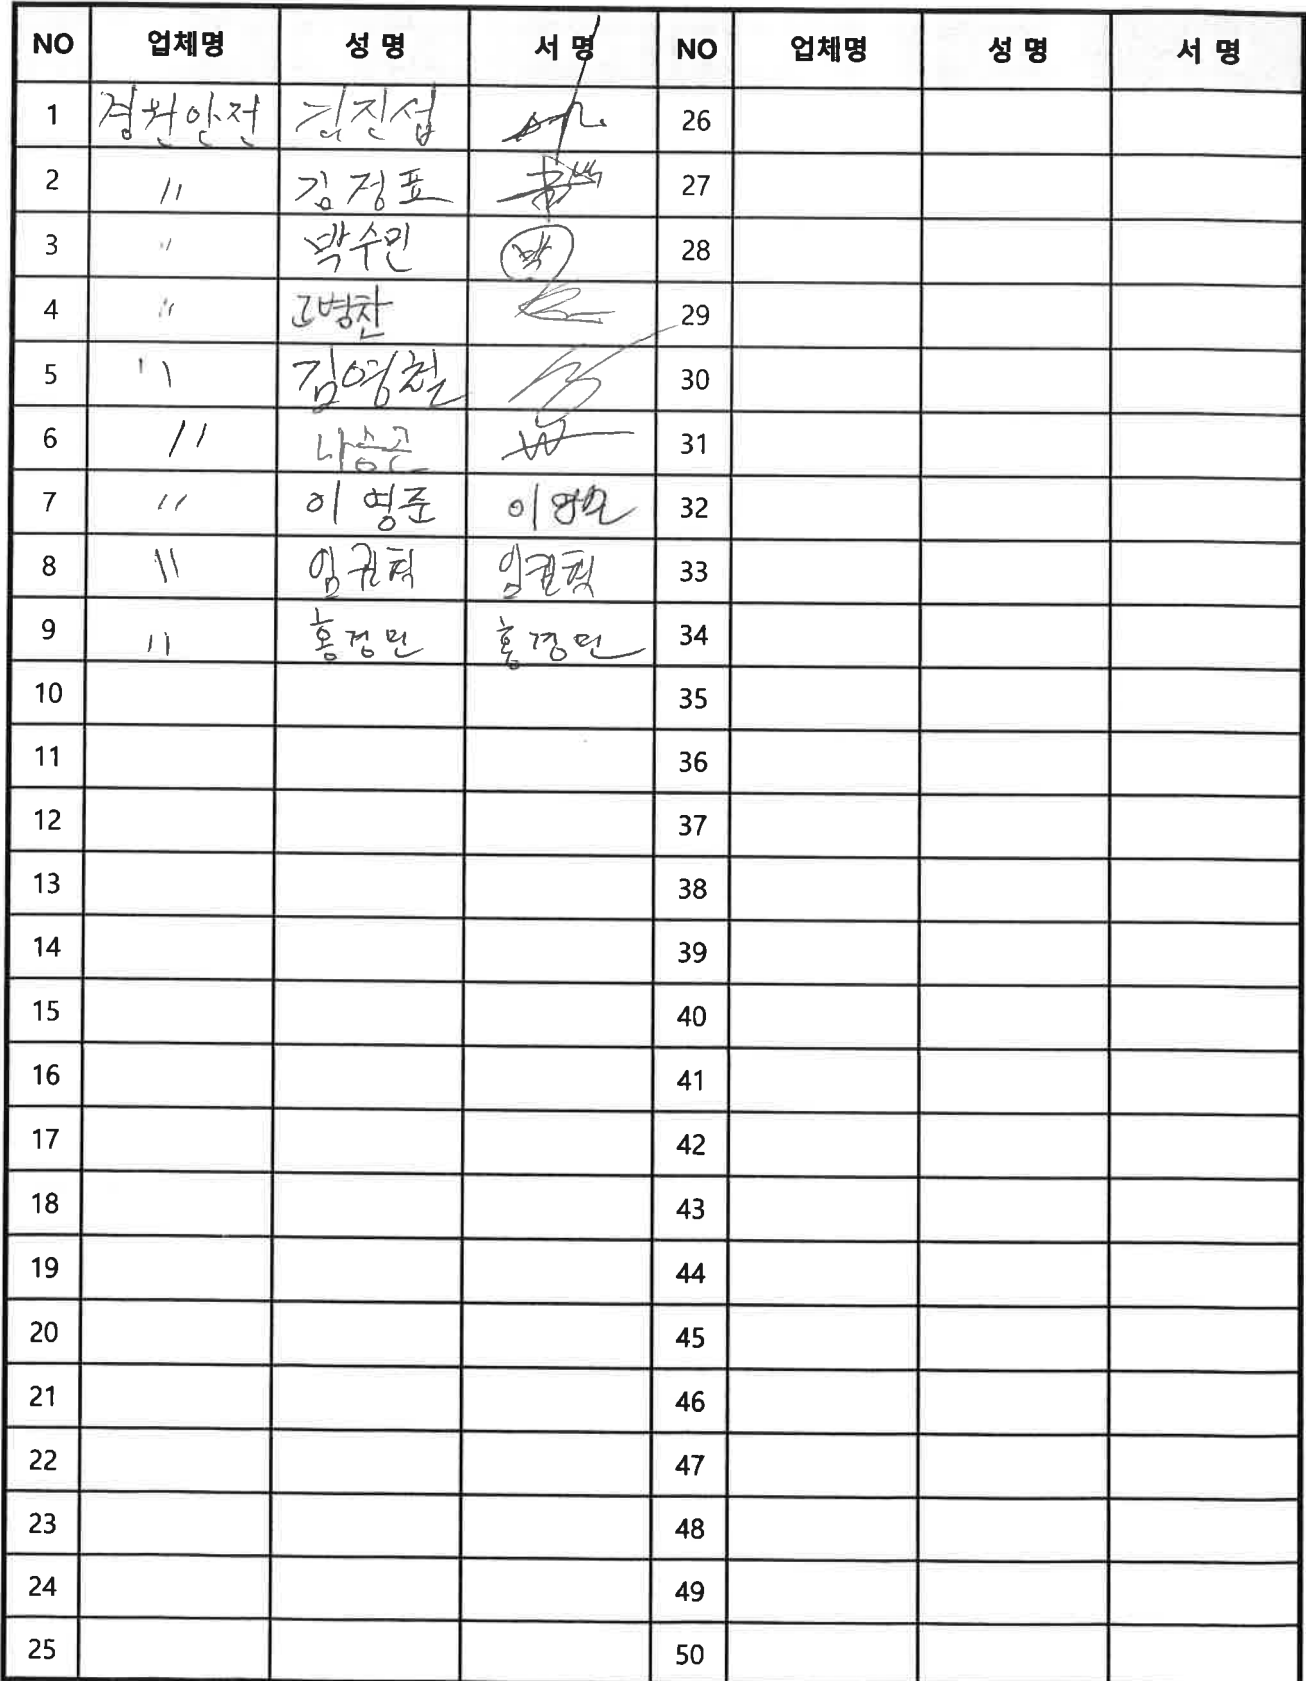 NO 업체명 성 명 서 명 NO 업체명 성 명 서 명
1 경원안전 김진섭 26
2 〃 김정표 27
3 〃 박수민 박 28
4 〃 고병찬 29
5 〃 김영철 30
6 〃 나승곤 31
7 〃 이영준 이영준 32
8 〃 임권혁 임권혁 33
9 〃 홍경민 홍경민 34
10 35
11 36
12 37
13 38
14 39
15 40
16 41
17 42
18 43
19 44
20 45
21 46
22 47
23 48
24 49
25 50